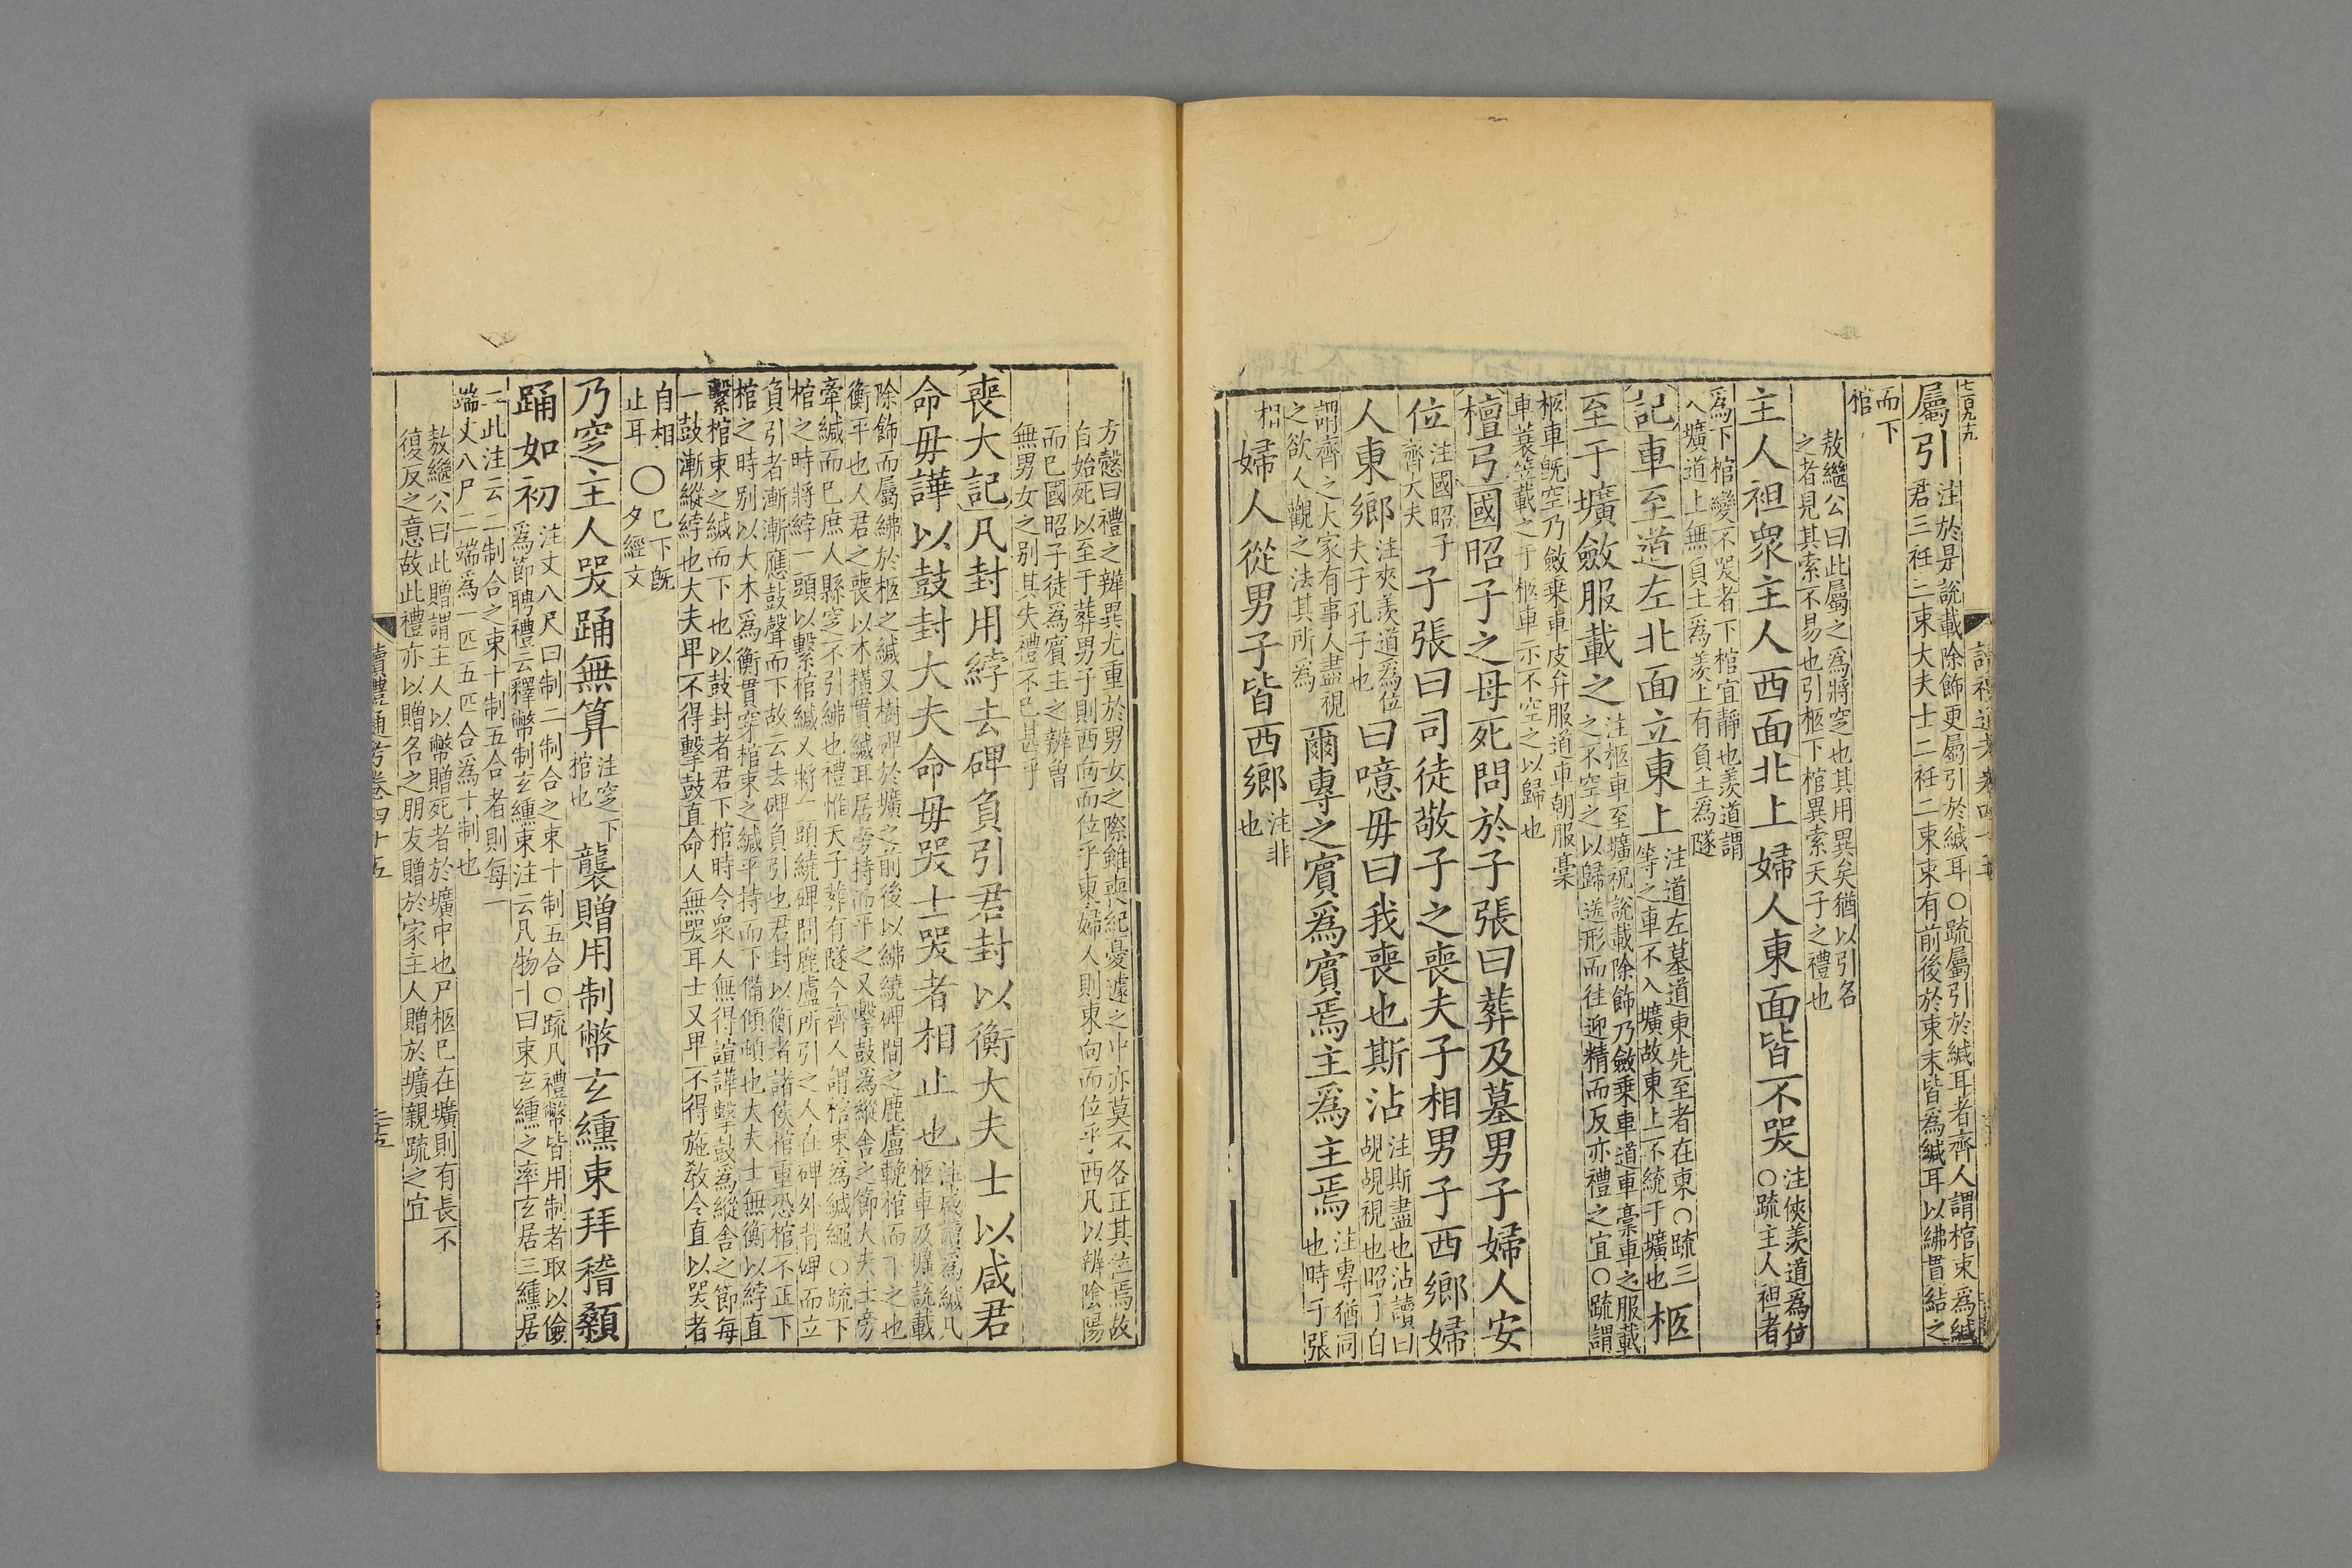 七百九十九
讀禮通考卷四十五
屬引注於是說載除飾更屬引於緘耳○疏屬引於緘耳者齊人謂棺束爲緘
君三衽三束大夫士二衽二束束有前後於束末皆爲緘耳以紼貫結之
而下
棺
敖繼公曰此屬之爲將窆也其用異矣猶以引名
之者見其索不易也引柩下棺異索天子之禮也
主人袒衆主人西面北上婦人東面皆不哭注俠羨道爲位
○疏主人袒者
爲下棺變不哭者下棺宜靜也羨道謂
入壙道上無負土爲羨上有負土爲隧
記車至道左北面立東上注道左墓道東先至者在東○疏三
等之車不入壙故東上不統于壙也柩
至于壙斂服載之注柩車至壙祝說載除飾乃斂乗車道車槀車之服載
之不空之以歸送形而往迎精而反亦禮之宜○疏謂
柩車旣空乃斂乗車皮弁服道車朝服槀
車蓑笠載之于柩車示不空之以歸也
檀弓國昭子之母死問於子張曰葬及墓男子婦人安
位注國昭子
齊大夫子張曰司徒敬子之喪夫子相男子西鄉婦
人東鄉注夾羨道爲位
夫子孔子也曰噫毋曰我喪也斯沾注斯盡也沾讀曰
覘覘視也昭子自
謂齊之大家有事人盡視
之欲人觀之法其所爲爾專之賓爲賓焉主爲主焉注專猶同
也時子張
相婦人從男子皆西鄉注非
也
方慤曰禮之辨異尤重於男女之際雖喪紀憂遽之中亦莫不各正其位焉故
自始死以至于葬男子則西向而位乎東婦人則東向而位乎西凡以辨陰陽
而已國昭子徒爲賓主之辨曾
無男女之别其失禮不已甚乎
喪大記凡封用綍去碑負引君封以衡大夫士以咸君
命毋譁以鼓封大夫命毋哭士哭者相止也注咸讀爲緘凡
柩車及壙說載
除飾而屬紼於柩之緘又樹碑於壙之前後以紼繞碑間之鹿盧輓棺而下之也
衡平也人君之喪以木橫貫緘耳居旁持而平之又擊鼓爲縱舍之節大夫士旁
牽緘而已庶人縣窆不引紼也禮惟天子葬有隧今齊人謂棺束爲緘繩○疏下
棺之時將綍一頭以繫棺緘又將一頭繞碑間鹿盧所引之人在碑外背碑而立
負引者漸漸應鼓聲而下故云去碑負引也君封以衡者諸侯棺重恐棺不正下
棺之時别以大木爲衡貫穿棺束之緘平持而下備傾頓也大夫士無衡以綍直
繫棺束之緘而下也以鼓封者君下棺時令衆人無得諠譁擊鼓爲縱舍之節每
一鼓漸縱綍也大夫卑不得擊鼓直命人無哭耳士又卑不得施敎令直以哭者
自相
止耳○已下旣
夕經文
乃窆主人哭踊無算注窆下
棺也襲贈用制幣玄纁束拜稽顙
踊如初注丈八尺曰制二制合之束十制五合○疏凡禮幣皆用制者取以儉
爲節聘禮云釋幣制玄纁束注云凡物十曰束玄纁之率玄居三纁居
二此注云二制合之束十制五合者則每一
端丈八尺二端爲一匹五匹合爲十制也
敖繼公曰此贈謂主人以幣贈死者於壙中也尸柩已在壙則有長不
復反之意故此禮亦以贈名之朋友贈於家主人贈於壙親疏之宜
讀禮通考卷四十五
三十五